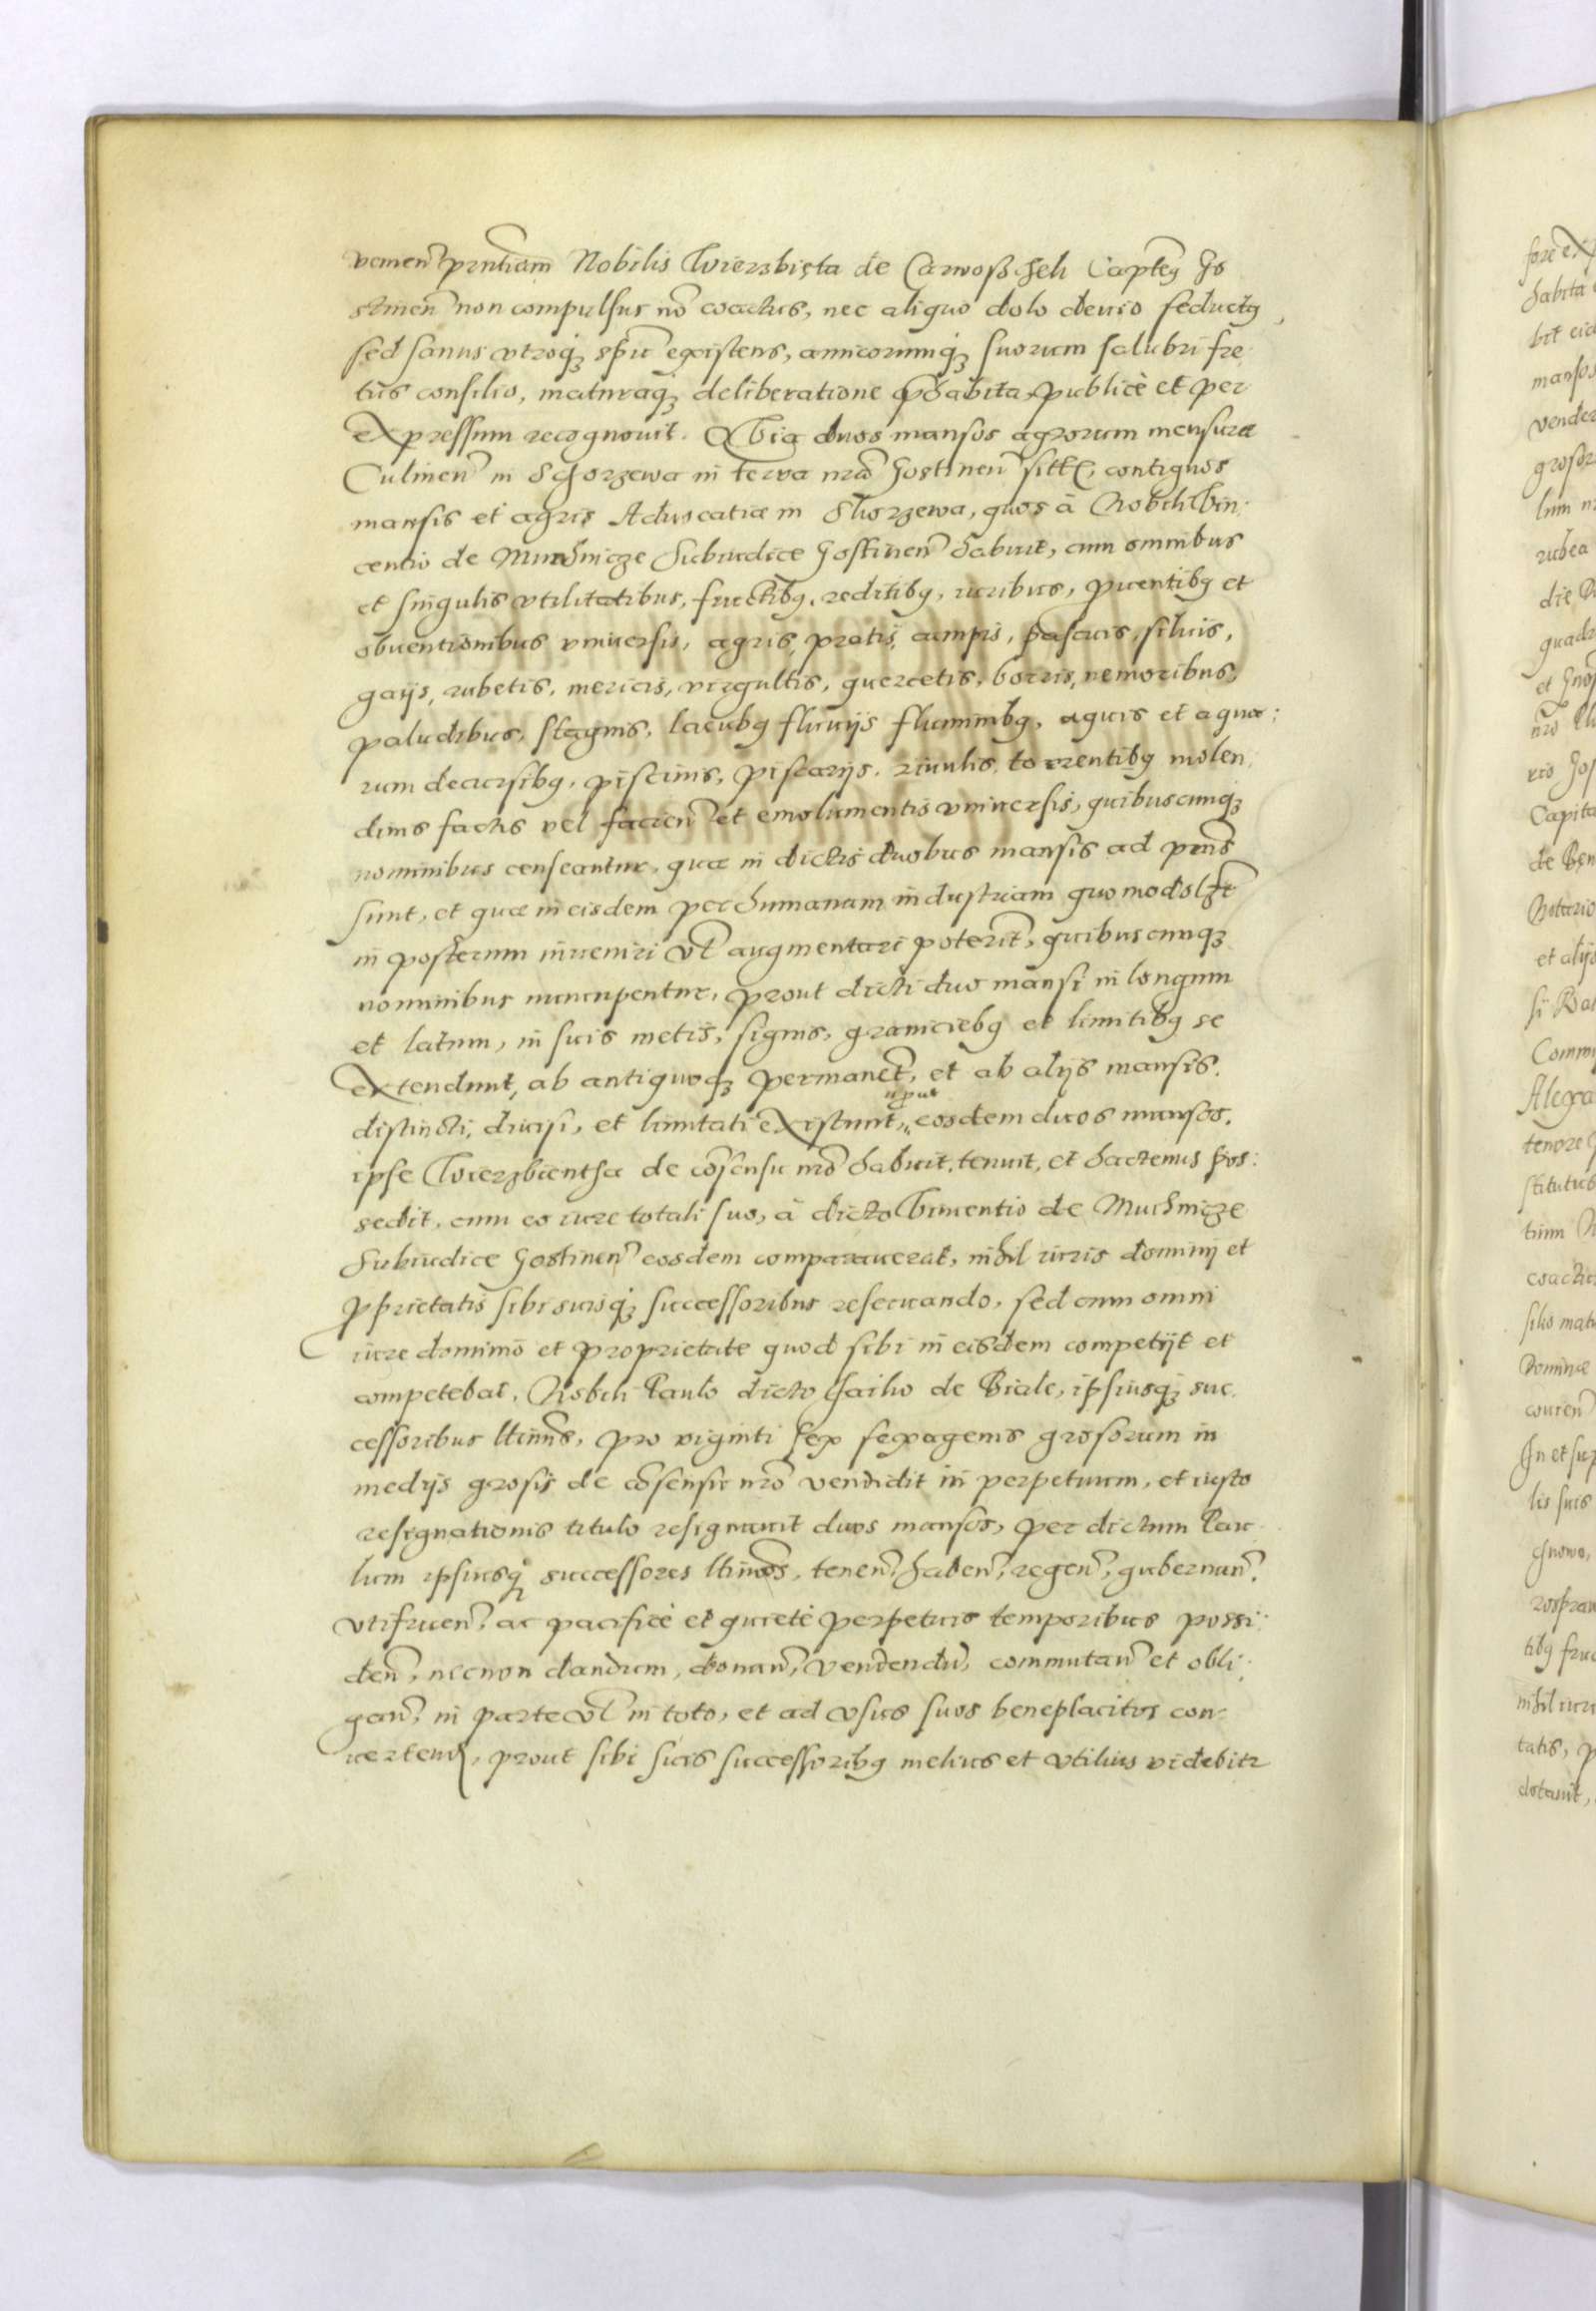 venien̄ prntiam Nobilis Wierzbięta de Carwoßcheli Capten⁹ Go
stinen̄ non compulsus nō coactus, nec aliquo dolo deuio seduct⁹,
sed sanus vtroq₃ spū existens, amicorumq₃ suorum salubri fre
tus consilio, maturaq₃ deliberatione p̄habita, publicè et per
expressum recognouit. Qvia duos mansos agrorum mensuræ
Culmen̄ in Schorzewa in terra nrā Gostinen̄ sitt, contiguos
mansis et agris Aduocatiæ in Skorzewa, quos à Nobili Vin:
centio de Muchnicze Subiudice Gostinen̄ habuit, cum omnibus
et singulis vtilitatibus, fructib⁹, reditib⁹, iuribus, puentib⁹ et
obuentionibus vniuersis, agris, pratis, campis, pascuis, siluis,
gaijs, rubetis, mericis, virgultis, quercetis, borris, nemoribus,
paludibus, stagnis, lacub⁹ fluuijs fluminib⁹, aquis et aqua:
rum decursib⁹, piscinis, piscarijs, riuulis, torrentib⁹ molen
dinis factis vel facien̄ et emolumentis vniuersis, quibuscumq₃
nominibus censeantur, quæ in dictis duobus mansis ad prns
sunt, et quæ in eisdem per humanam industriam quomodolzt
in posterum inueniri vl augmentari poterit, quibuscumq₃
nominibus nuncupentur, prout dicti duo mansi in longum
et latum, in suis metis, signis, graniciebg et limitibg se
extendunt, ab antiquoq₃ permanet, et ab alijs mansis.
distincti, diuisi, et limitati existunt, eosdem duos mansos,
ipse Wierzbientha de cōsensu nrō habuit, tenuit, et hactenus pos:
sedit, cum eo iure totali suo, à dicto Vincentio de Muchnicze
Subiudice Gostinen̄ eosdem comparauerat, nihil iuris dominij et
pprietatis sibi suisq₃ successoribus reseruando, sed cum omni
iure dominio et proprietate quod sibi in eisdem competijt et
competebat, Nobili Paulo dicto de Biale, ipsiusq₃ suc
cessoribus lttimis, pro viginti sex sexagenis grosorum in
medijs grosis de cōsensu nrō vendidit in perpetuum, et iusto
resignationis titulo resignauit duos mansos, per dictum Pau
lum ipsiusq₃ successores lttimos, tenen̄, haben̄, regen̄, gubernan̄,
vtifruen̄, ac pacificè et quietè perpetuis temporibus possi:
den̄, necnon dandum, donan̄, vendendū, commutan̄ et obli:
gan̄, in parte vl in toto, et ad vsus suos beneplacitos con-
uertend, prout sibi suis successorib⁹ melius et vtilius videbitr